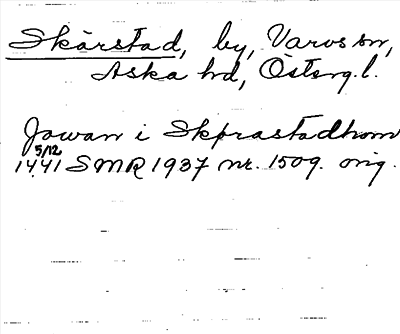 Skårstad, by, Varvs sn,
Aska hd, Östergl.
Jowan i Skorastadhom
5/12
1441 SMR 1937 nr. 1509. orig.